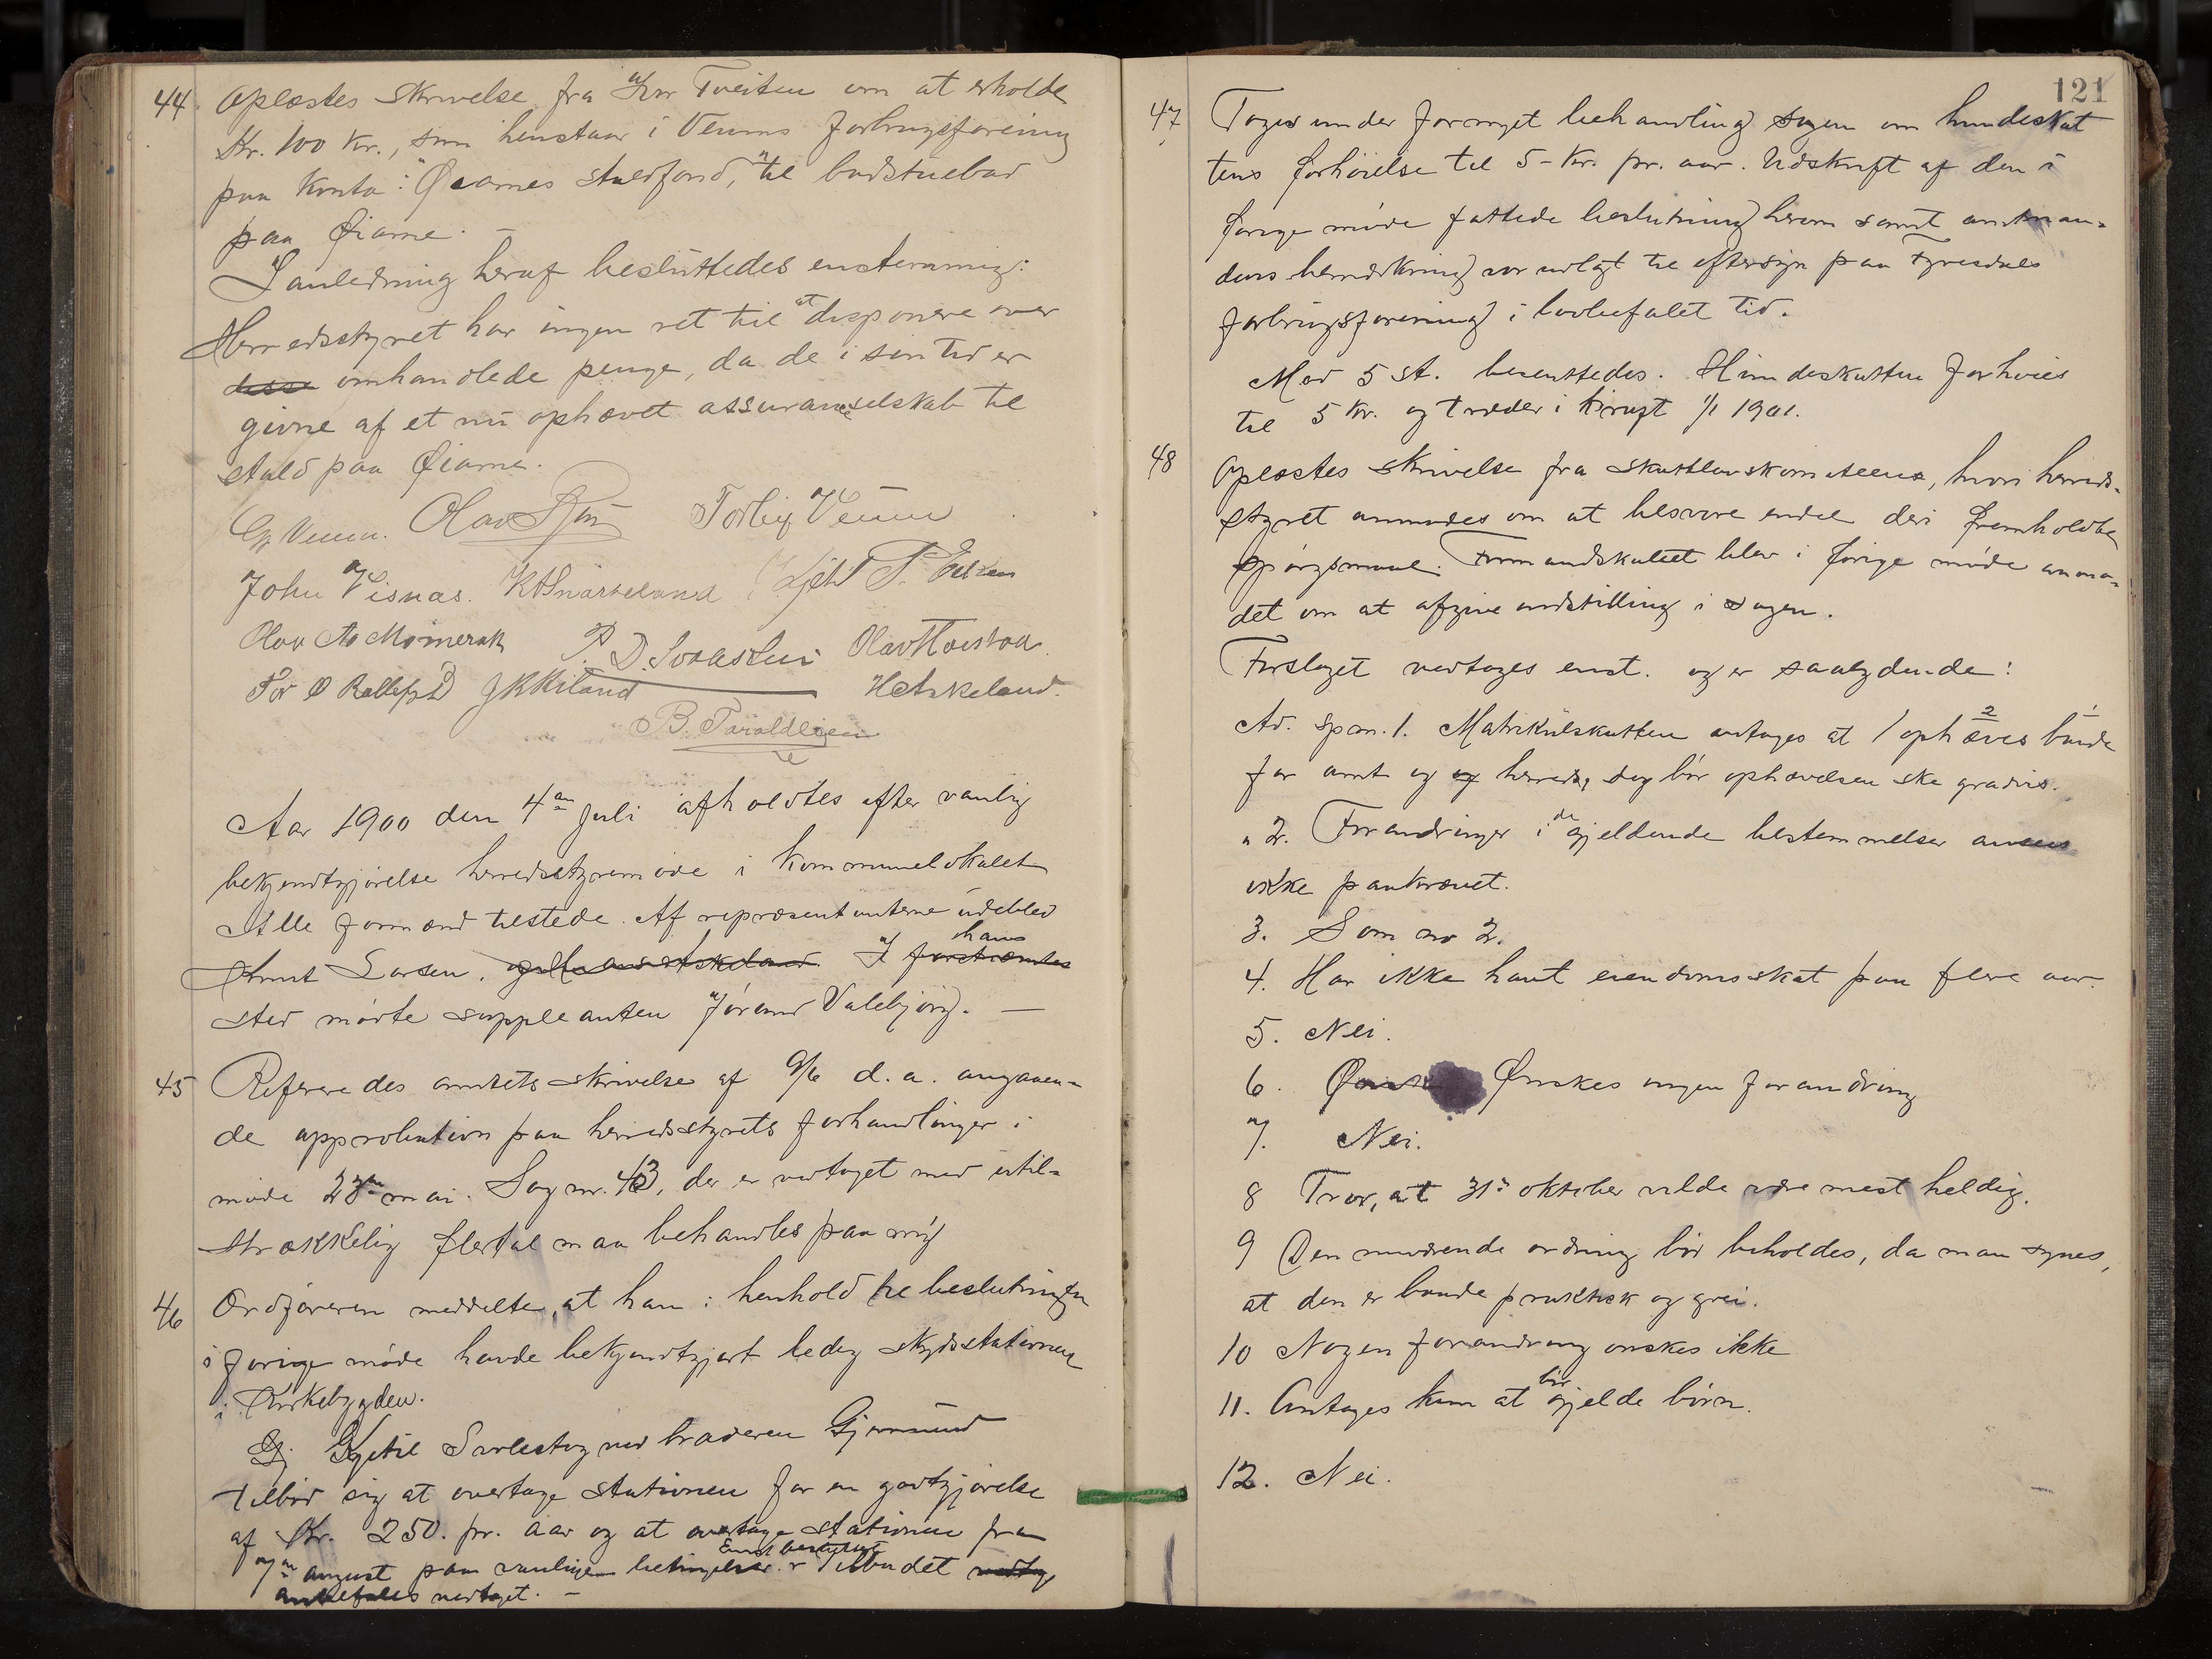 44. Oplæstes skrivelse fra Ivar Tveiten om at erholde
Kr. 100 kr., som henstaar i Veums forbrugsforening
paa konto: "Øiarnes staldfond," til badstuebad
paa Øiarne. —
I anledning heraf besluttedes enstemmig:
Herredsstyret har ingen ret til at disponere over
disse omhandlede penge, da de i sin tid er
givne af et nu ophævet assuranceselskab til
stald paa Øiarne.
G. Veum. Olav Torleif Veum
John Visnæs. K A Snarteland Kjetil T.
Olav As Momrak P. D. Olav
Tor O J K Kiland H Askeland.
B. Taraldlien
Aar 1900 den 4de juli afholdtes efter vanlig
bekjendtgjørelse herredsstyremøde i kommunelokalet
Alle formænd tilstede. Af repræsentanterne udeblev
Knut Larsen. og Askeland. I forstnævntes hans
sted mødte suppleanten Jørand Valebjørg. —
45 Referedes amtets skrivelse af 9/6 d. a. angaaen-
de approbation paa herredsstyrets forhandlinger i
møde 23de mai. Sag nr. 43, der er vedtaget med util-
strækkelig flertal maa behandles paa ny
46 Ordføreren meddelte, at han i henhold til beslutningen
i forige møde havde bekjendtgjort ledig skydsstationen
i Kirkebygden.
Gj Kjetil med braderen Gjermund
tilbød sig at overtage stationen for en godtgjørelse
af Kr. 250. pr. aar og at overtage stationen fra
7de august paa vanlige betingelser. Enst. besluttet Tilbudet vedtog
anbefales vedtaget. —
121
47. Toges under fornyet behandling sagen om hundeskat
tens forhøielse til 5- kr. pr. aar. Udskrift af den i
forige møde fattede beslutning herom samt amtman-
dens bemærkning var udlagt til eftersyn paa Fyresdals
forbrugsforening i lovbefalet tid.
Med 5 st. besluttedes. Hundeskatten forhøies
til 5 kr. og træder i kraft 1/1 1901.
48 Oplæstes skrivelse fra skattlovskomiteen, hvori herreds-
styret anmodes om at besvare endel deri fremholdte
spørgsmaal. Formandskabet blev i forige møde anmo-
det om at afgive indstilling i sagen.
Forslaget vedtages enst. og er saalydende:
Ad. spm. 1. Matrikülskatten antages at ophæves 2 baade 1
for amt og og herred, dog bør ophævelsen ske gradvis.
" 2. Forandringer i de gjeldende bestemmelser ansees
ikke paakrævet.
3. Som no 2.
4. Har ikke havt eiendomsskat paa flere aar.
5. Nei.
6. Ønskes ingen forandring
7. Nei.
8 Tror, at 31: oktober vilde være mest heldig.
9 Den nuværende ordning bør beholdes, da man synes,
at den er baade praktisk og grei.
10 Nogen forandring ønskes ikke
11. Antages kun at bør gjelde børn.
12. Nei.